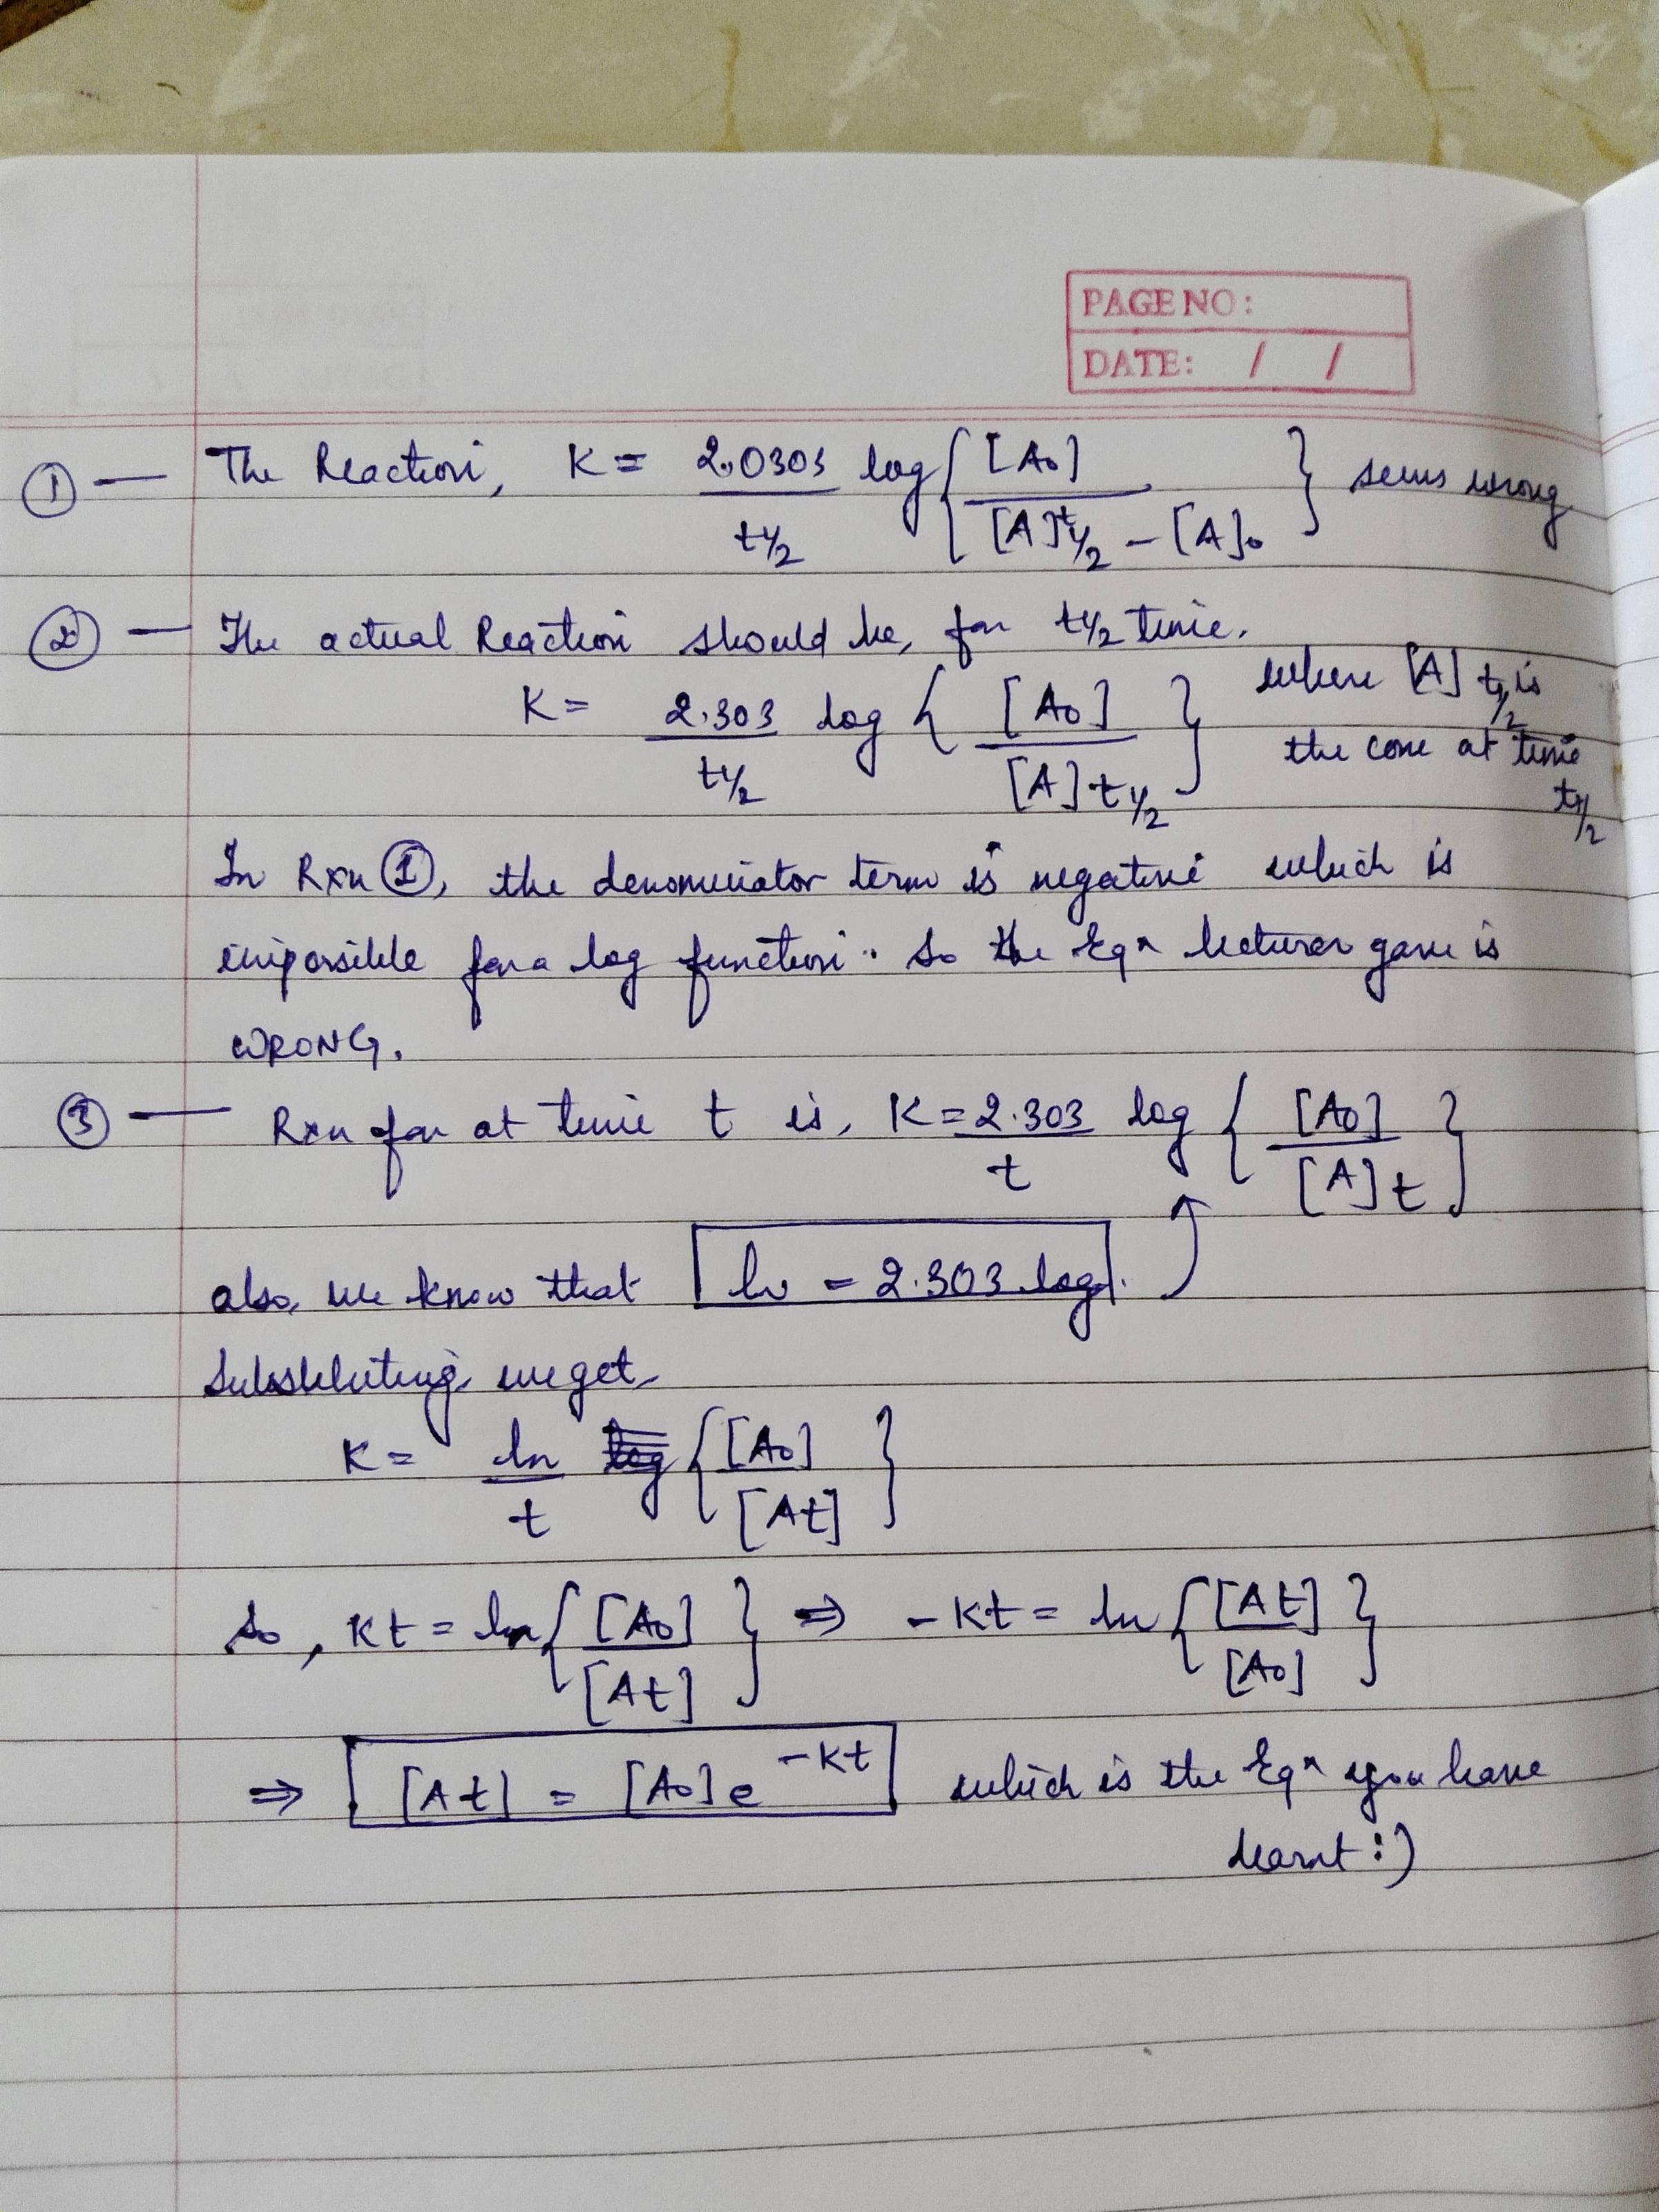 PAGE NO:
DATE: / /
① — The Reaction, K = 2.0303/t½ log{[A₀]/[A]t½ - [A]₀} seems wrong
② — The actual Reaction should be, for t½ time.
K = 2.303/t½ log{[A₀]/[A]t½} where [A]t½ is
the conc at time
t½
In Rxn ①, the denominator term is negative which is
impossible for a log function. So the Eqn lecturer gave is
WRONG.
③ — Rxn for at time t is, K = 2.303/t log{[A₀]/[A]t}
also, we know that ln = 2.303 log.
Substituting, we get,
K = ln/t {[A₀]/[At]}
So, Kt = ln{[A₀]/[At]} ⇒ -Kt = ln{[At]/[A₀]}
⇒ [At] = [A₀]e^-Kt which is the Eqn you have
learnt :)